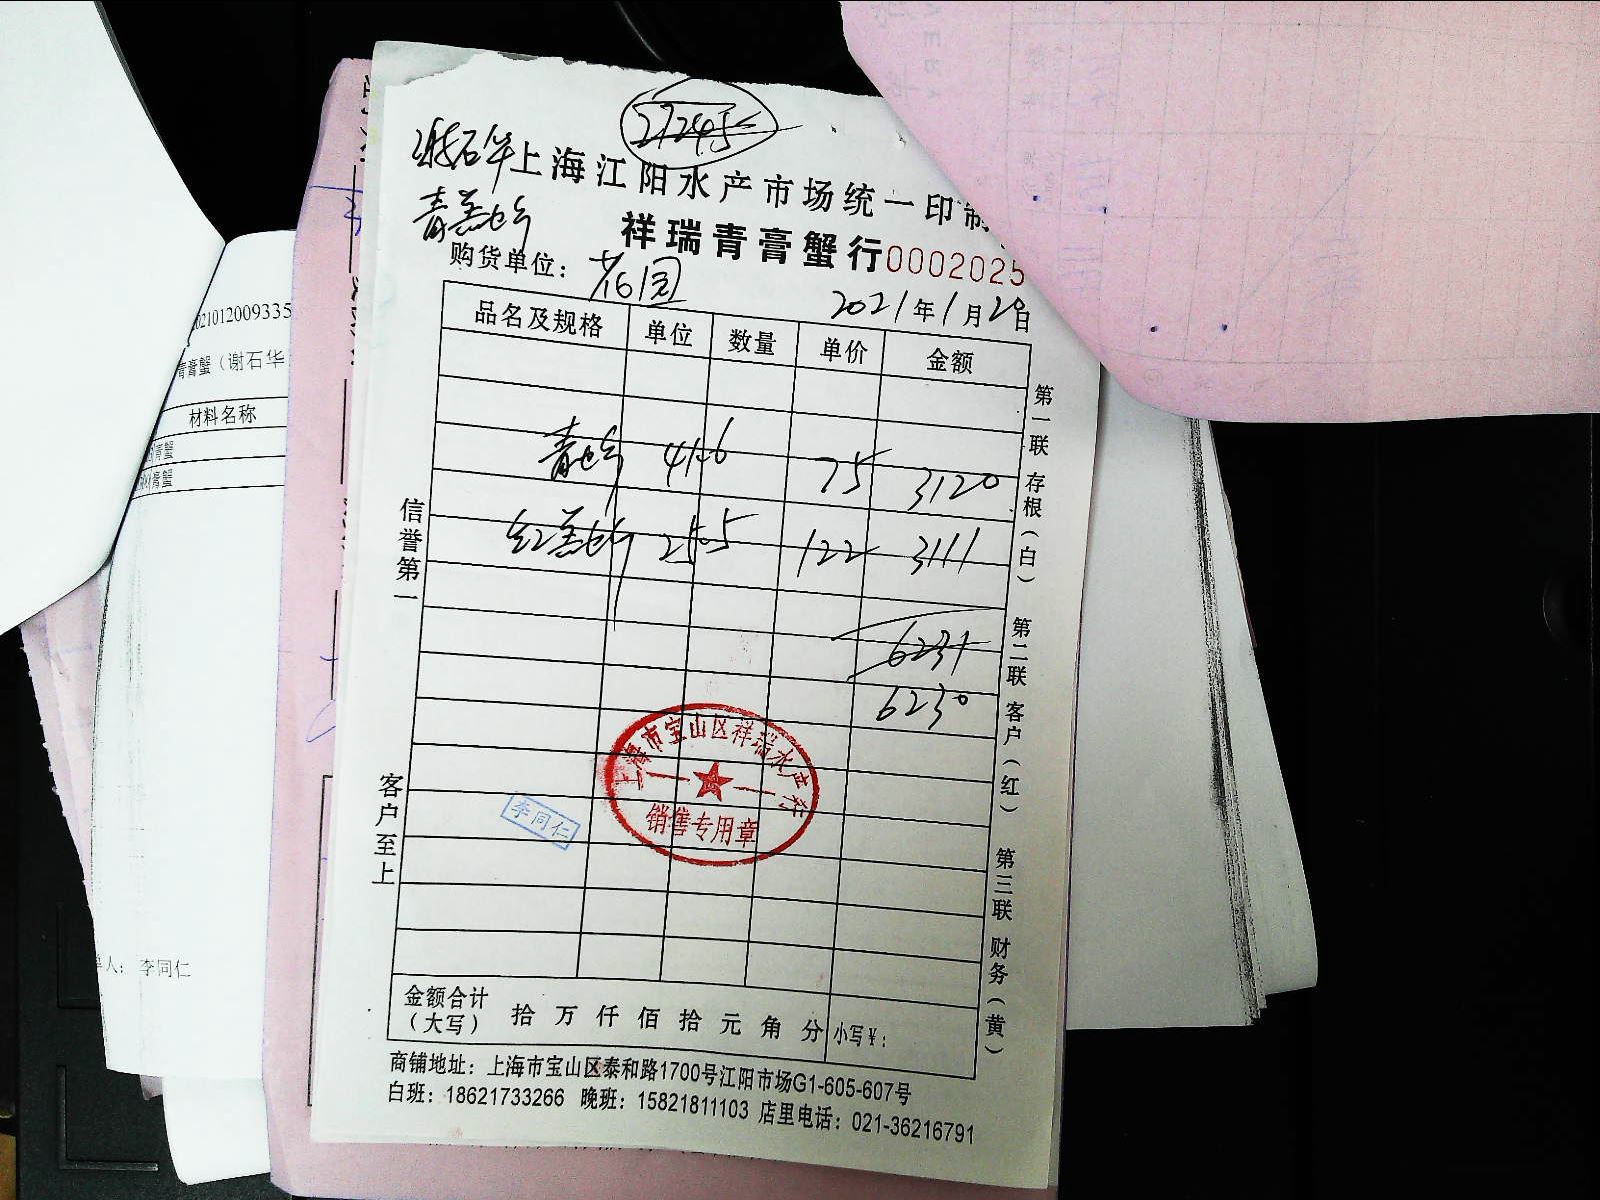 27245
谢石华
上海江阳水产市场统一印制
青羔蟹
祥瑞青膏蟹行 0002025
购货单位： 花园
2021年1月20日
品名及规格 单位 数量 单价 金额
青蟹 41.6 75 3120
红羔蟹 25.5 122 3111
6231
6230
信誉第一
客户至上
第一联 存根（白）
第二联 客户（红）
第三联 财务（黄）
上海市宝山区祥瑞水产行
销售专用章
李同仁
金额合计（大写） 拾 万 仟 佰 拾 元 角 分 小写￥：
商铺地址：上海市宝山区泰和路1700号江阳市场G1-605-607号
白班：18621733266 晚班：15821811103 店里电话：021-36216791
2021012009335
青膏蟹（谢石华
材料名称
青蟹
膏蟹
单人： 李同仁